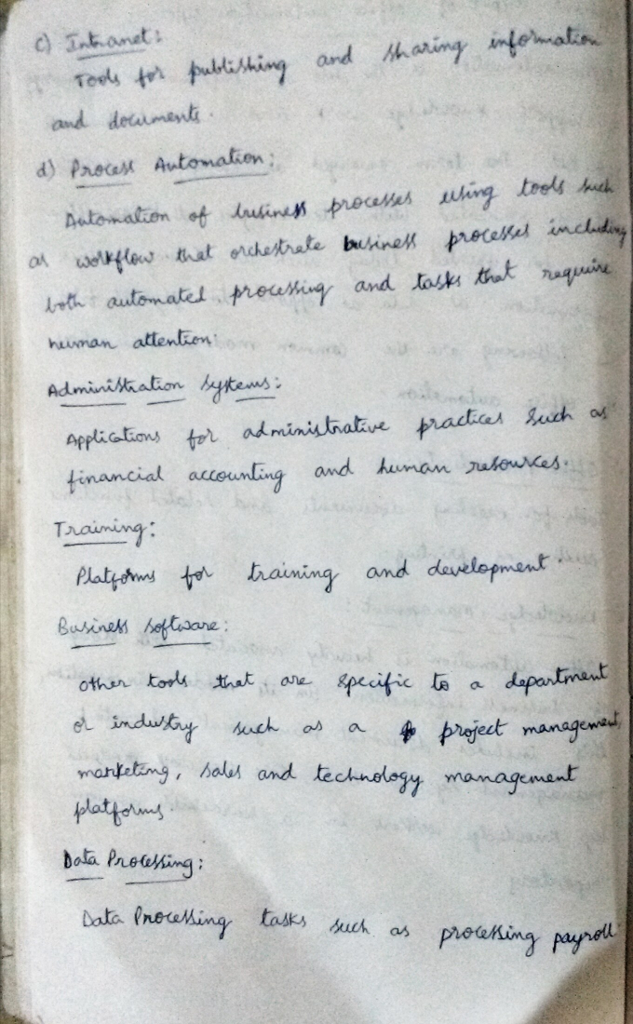 c) Intranet:
Tools for publishing and sharing information
and documents.
d) Process Automation:
Automation of business processes using tools such
as workflow that orchestrate business processes including
both automated processing and tasks that require
human attention.
Administration Systems:
Applications for administrative practices such as
financial accounting and human resources.
Training:
Platforms for training and development.
Business software:
Other tools that are specific to a department
or industry such as a project management,
marketing, sales and technology management
platforms
Data Processing:
Data Processing tasks such as processing payroll